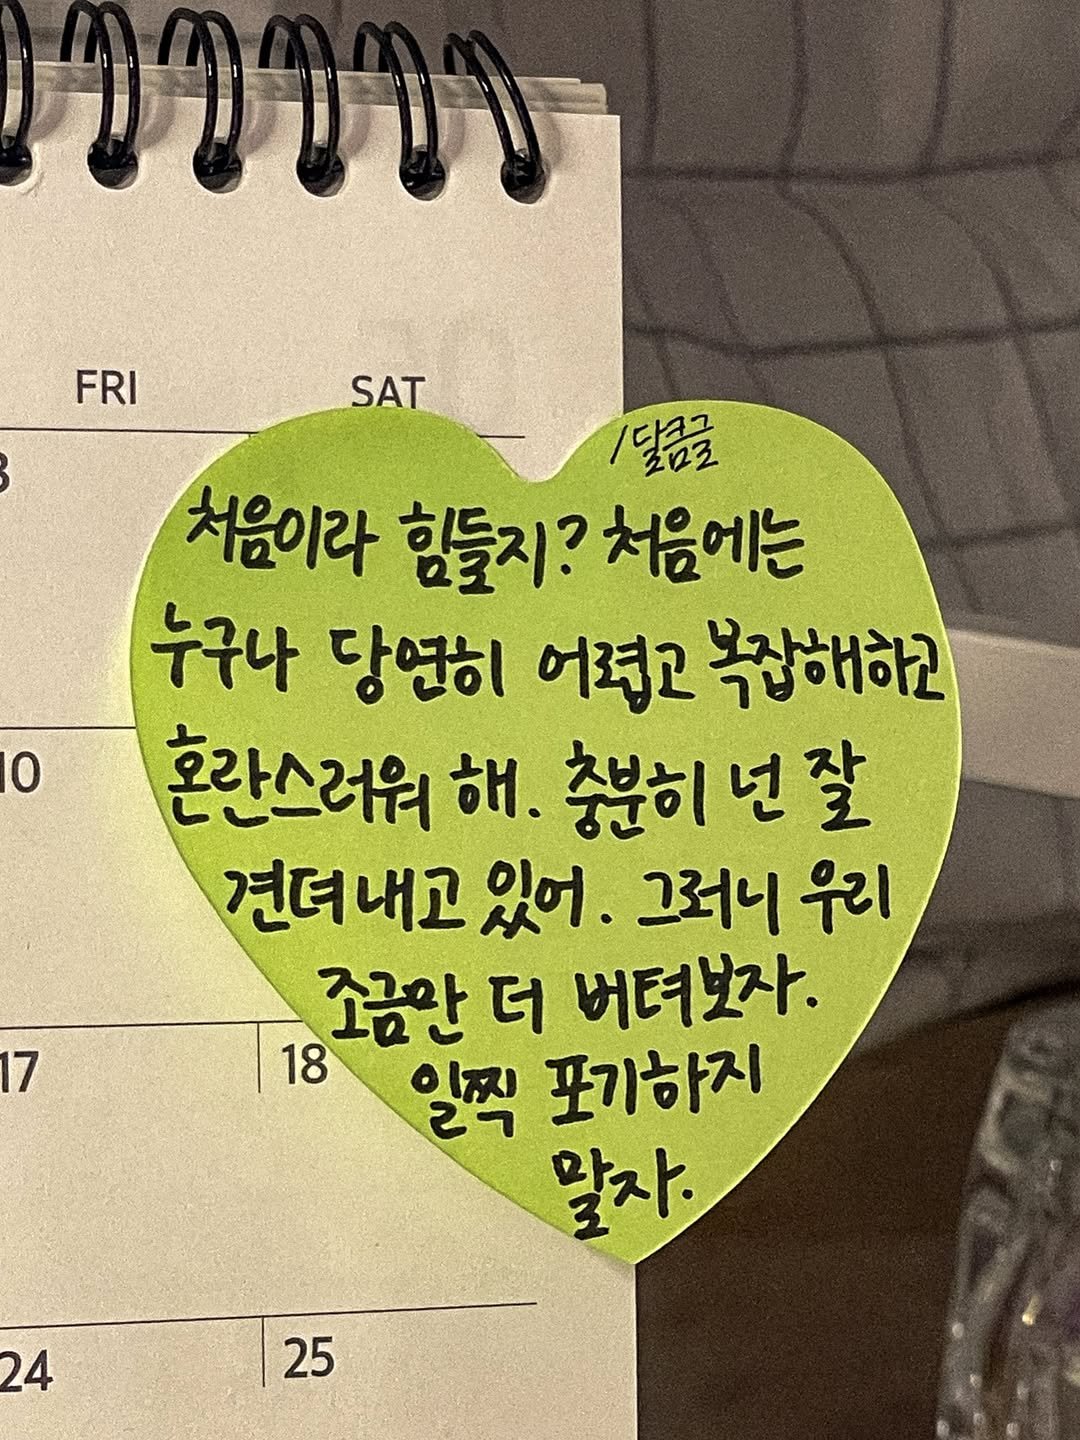 FRI SAT
/달콤글
처음이라 힘들지? 처음에는
누구나 당연히 어렵고 복잡해하고
혼란스러워 해. 충분히 넌 잘
견뎌내고 있어. 그러니 우리
조금만 더 버텨보자.
일찍 포기하지
말자.
3
10
17 18
24 25